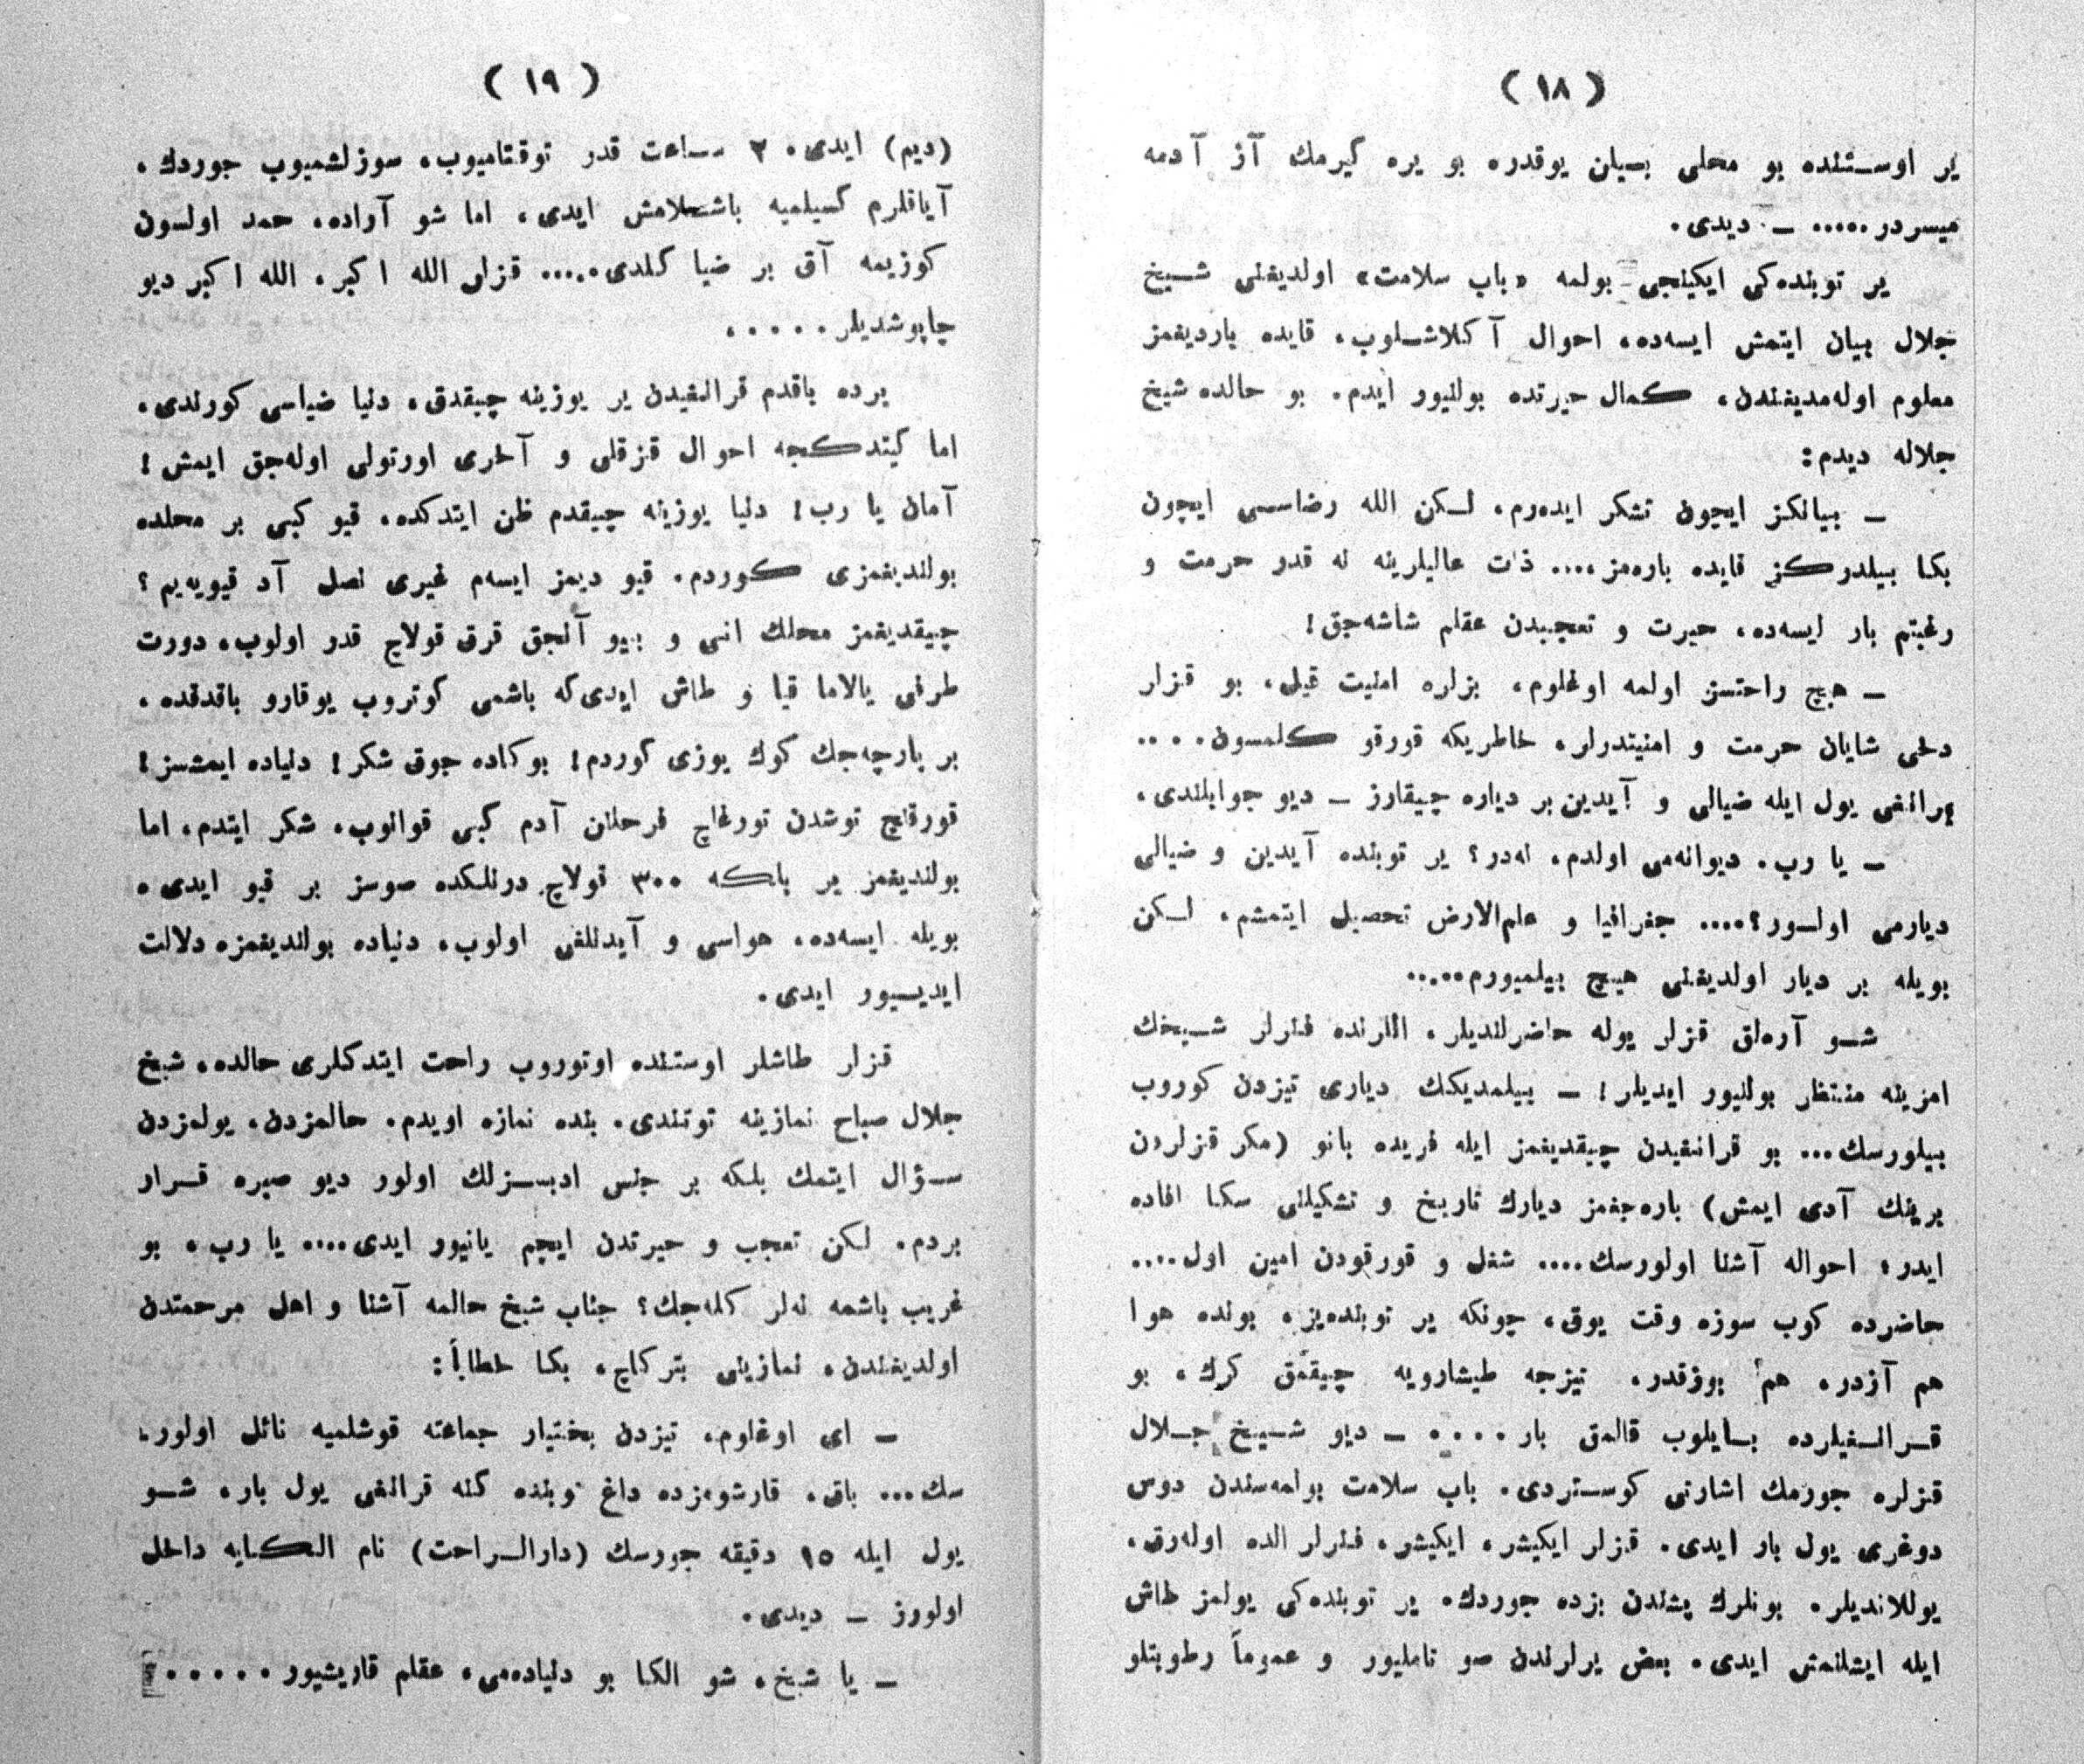 ( ١٨ )
ير اوستنده بو محلى بيلن يوقدر، بو يره كيرمك آز آدمه
ميسردر..... ــ ديدى.
ير توبنده‌كى ايكينجى بولمه «باب سلامت» اولديغنى شيخ
جلال بيان ايتمش ايسه‌ده، احوال آكلاشلوب، قايده بارديغمز
معلوم اوله‌مديغندن، كمال حيرتده بولنيور ايدم. بو حالده شيخ
جلاله ديدم:
ــ بيانكز ايچون تشكر ايده‌رم، لكن الله رضاسى ايچون
بكا بيلدركز قايده باره‌مز.... ذات عاليلرينه نه قدر حرمت و
رغبتم بار ايسه‌ده، حيرت و تعجبدن عقلم شاشه‌جق!
ــ هيچ راحتسز اولمه اوغلوم، بزلره امنيت قيل، بو قزلر
دخى شايان حرمت و امنيتدرلر، خاطريكه قورقو كلمسون....
قرانغى يول ايله ضيالى و آيدين بر دياره چيقارز ــ ديو جوابلندى.
ــ يا رب، ديوانه‌مى اولدم، نه‌در؟ ير توبنده آيدين و ضيالى
ديارمى اولور؟.... جغرافيا و علم‌الارض تحصيل ايتمشم، لكن
بويله بر ديار اولديغنى هيچ بيلميورم.....
شو آره‌لق قزلر يوله حاضرلنديلر، اللرنده فنرلر شيخك
امرينه منتظر بولنيور ايديلر! ــ بيلمديكك ديارى تيزدن كوروب
بيلورسك... بو قرانغيدن چيقديغمز ايله فريده بانو (مكر قزلردن
برينك آدى ايمش) باره‌جغمز ديارك تاريخ و تشكيلنى سكا افاده
ايدر، احواله آشنا اولورسك.... شغل و قورقودن امين اول....
حاضرده كوب سوزه وقت يوق، چونكه ير توبنده‌يز، بونده هوا
هم آزدر، هم بوزقدر، تيزجه طيشارويه چيقمق كرك، بو
قرانغيلرده بايلوب قالمق بار.... ــ ديو شيخ جلال
قزلره جورمك اشارتى كوستردى. باب سلامت بولمه‌سندن دوس
دوغرى يول بار ايدى. قزلر ايكيشر، ايكيشر، فنرلر الده اوله‌رق،
يوللانديلر. بونلرك پشندن بزده جوردك. ير توبنده‌كى يولمز طاش
ايله ايشلنمش ايدى. بعض يرلرندن صو تامليور و عموماً رطوبتلو
( ١٩ )
(ديم) ايدى. ٢ ساعت قدر توقتاميوب، سوزلشميوب جوردك.
آياقلرم كسيلميه باشلامش ايدى، اما شو آراده، حمد اولسون
كوزيمه آق بر ضيا كلدى..... قزلر الله اكبر، الله اكبر ديو
چاپوشديلر.....
برده باقدم قرانغيدن ير يوزينه چيقدق، دنيا ضياسى كورندى،
اما كيتدكجه احوال قزقلى و آخرى اورتولى اوله‌جق ايمش!
آمان يا رب! دنيا يوزينه چيقدم ظن ايتدكده، قيو كبى بر محلده
بولنديغمزى كوردم. قيو ديمز ايسه‌م غيرى نصل آد قيويه‌يم؟
چيقديغمز محلك انى و بيو آنجق قرق قولاچ قدر اولوب، دورت
طرفى يالاما قيا و طاش ايدى‌كه باشمى كوتروب يوقارو باقدقده،
بر پارچه‌جك كوك يوزى كوردم! بوكاده جوق شكر! دنياده ايمشز!
قورقاچ توشدن تورغاچ فرحلنن آدم كبى قوانوب، شكر ايتدم، اما
بولنديغمز ير بلكه ٣٠٠ قولاچ درنلكده صوسز بر قيو ايدى.
بويله ايسه‌ده، هواسى و آيدنلغى اولوب، دنياده بولنديغمزه دلالت
ايدييور ايدى.
قزلر طاشلر اوستنده اوتوروب راحت ايتدكلرى حالده، شيخ
جلال صباح نمازينه توتندى. بنده نمازه اويدم. حالمزدن، يولمزدن
سؤال ايتمك بلكه بر جنس ادبسزلك اولور ديو صبره قرار
بردم. لكن تعجب و حيرتدن ايچم يانيور ايدى.... يا رب، بو
غريب باشمه نه‌لر كله‌جك؟ جناب شيخ حالمه آشنا و اهل مرحمتدن
اولديغندن، نمازينى بتركاچ، بكا خطاباً:
ــ اى اوغلوم، تيزدن بختيار جماعته قوشلميه نائل اولور-
سك... باق، قارشومزده داغ توبنده كنه قرانغى يول بار، شو
يول ايله ١٥ دقيقه جورسك (دارالراحت) نام الكايه داخل
اولورز ــ ديدى.
ــ يا شيخ، شو الكا بو دنياده‌مى، عقلم قاريشيور.....